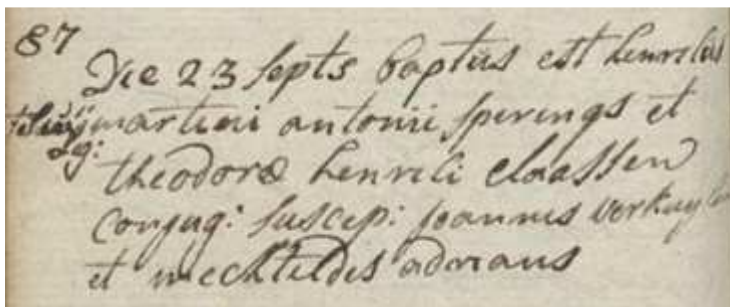 87
Die 23 septs baptus est henricus
filius martini antonii sperings et
lg: theodoræ henrici claassen
conjug: suscep: joannes verkuylen
et mechtildis adriaans